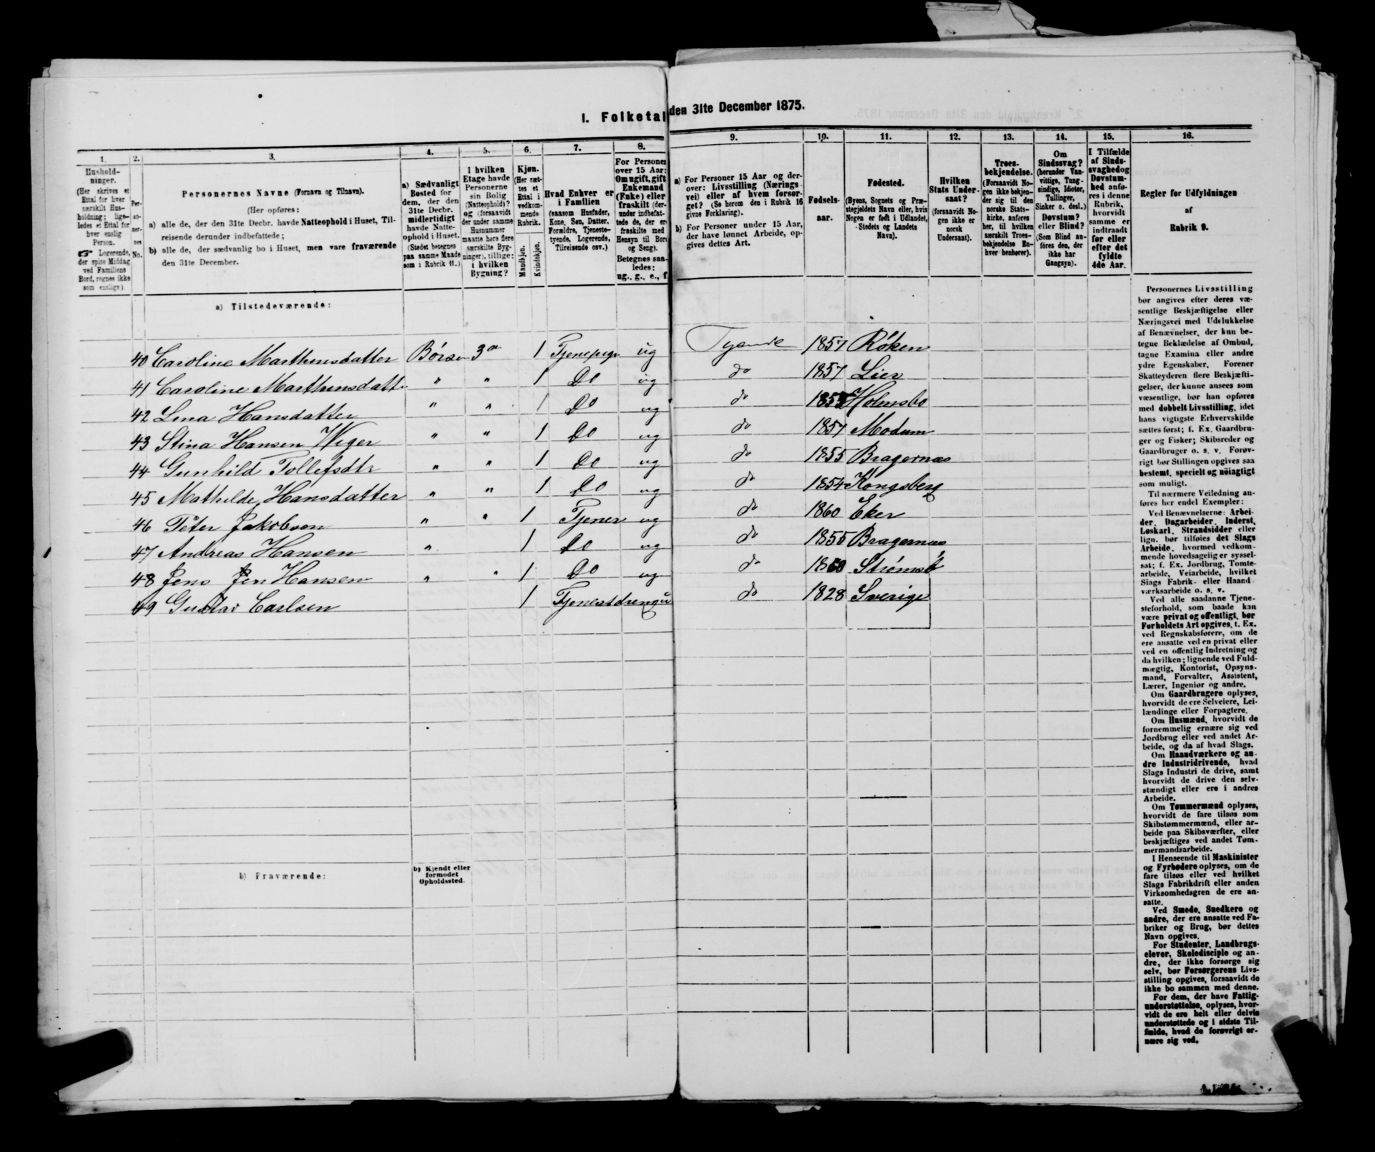 I. Folketal den 31te December 1875.
1.
Hushold-
ninger.
(Her skrives et
Ettal for hver
særskilt Hus-
holdning; lige-
ledes et Ettal for
hver enslig
Person.
☞ Logerende,
der spise Middag
ved Familiens
Bord, regnes ikke
som enslige).
2.
Per-
so-
ner-
nes
No.
3.
Personernes Navne (Fornavn og Tilnavn).
(Her opføres:
a) alle de, der den 31te Decbr. havde Natteophold i Huset, Til-
reisende derunder indbefattede;
b) alle de, der sædvanlig bo i Huset, men vare fraværende
den 31te December.
4.
a) Sædvanligt
Bosted for
dem, der den
31te Decbr.
midlertidigt
havde Natte-
ophold i Huset.
(Stedet betegnes
paa samme Maade
som i Rubrik 11.)
5.
I hvilken
Etage havde
Personerne
sin Bolig
(Natteophold)?
og (forsaavidt
der under samme
Husnummer
maatte høre flere
særskilte Byg-
ninger), tillige:
i hvilken
Bygning?
6.
Kjøn.
(Her sæt-
tes et
Ettal i
vedkom-
mende
Rubrik.
Mandkjøn.
Kvindekjøn.
7.
Hvad Enhver er
i Familien
(saasom Husfader,
Kone, Søn, Datter,
Forældre, Tjeneste-
tyende, Logerende,
Tilreisende osv.)
8.
For Personer
over 15 Aar:
Om ugift, gift,
Enkemand
(Enke) eller
fraskilt (der-
under indbefat-
tede de, der ere
fraskilte med
Hensyn til Bord
og Seng).
Betegnes saa-
ledes:
ug., g., e., f.
9.
a) For Personer 15 Aar og der-
over: Livsstilling (Nærings-
vei) eller af hvem forsør-
get? (Se herom den i Rubrik 16
givne Forklaring).
b) For Personer under 15 Aar,
der have lønnet Arbeide, op-
gives dettes Art.
10.
Fødsels-
aar.
11.
Fødested.
(Byens, Sognets og Præ-
stegjeldets Navn eller, hvis
Nogen er født i Udlandet,
Stedets og Landets
Navn).
12.
Hvilken
Stats Under-
saat?
(forsaavidt No-
gen ikke er
norsk
Undersaat).
13.
Troes-
bekjendelse.
(Forsaavidt No-
gen ikke bekjen-
der sig til den
norske Stats-
kirke, anføres
her, til hvilken
særskilt Troes-
bekjendelse En-
hver henhører).
14.
Om
Sindssvag?
(herunder Van-
vittige, Tung-
sindige, Idioter,
Tullinger,
Sinker o. desl.)
Døvstum?
eller Blind?
(Som Blind an-
føres den, der
ikke har
Gangsyn).
15.
I Tilfælde
af Sinds-
svaghed og
Døvstum-
hed anfø-
res i denne
Rubrik,
hvorvidt
samme er
indtraadt
før eller
efter det
fyldte
4de Aar.
16.
Regler for Udfyldningen
af
Rubrik 9.
a) Tilstedeværende:
40 Caroline Marthinsdatter Børsen 3a 1 Tjenepige ug Tyende 1857 Røken
41 Caroline Marthinsdatt. " " 1 Do ug do 1857 Lier
42 Lina Hansdatter " " 1 Do ug do Holmsbo
43 Stina Hansen Wiger " " 1 Do ug do 1857 Modum
44 Gunhild Tollefsdtr " " 1 Do ug do 1855 Bragernæs
45 Mathilde Hansdatter " " 1 Do ug do 1854 Kongsberg
46 Peter Jakobsen " " 1 Tjener ug do 1860 Eker
47 Andreas Hansen " 1 Do ug do 1855 Bragernæs
48 Jens Hansen " " 1 Do ug do 1860 Strømsø
49 Gustav Carlsen 1 Tjenestdreng ug do 1828 Sverige
b) Fraværende:
b) Kjendt eller
formodet
Opholdssted.
Personernes Livsstilling
bør angives efter deres væ-
sentlige Beskjæftigelse eller
Næringsvei med Udelukkelse
af Benævnelser, der kun be-
tegne Beklædelse af Ombud,
tagne Examina eller andre
ydre Egenskaber. Forener
Skatteyderen flere Beskjæfti-
gelser, der kunne ansees som
væsentlige, bør han opføres
med dobbelt Livsstilling, idet
hans vigtigste Erhvervskilde
sættes først; f. Ex. Gaardbru-
ger og Fisker; Skibsreder og
Gaardbruger o. s. v. Forøv-
rigt bør Stillingen opgives saa
bestemt, specielt og nøiagtigt
som muligt.
Til nærmere Veiledning an-
føres her endel Exempler:
Ved Benævnelserne: Arbei-
der, Dagarbeider, Inderst,
Løskarl, Strandsidder eller
lign. bør tilføies det Slags
Arbeide, hvormed vedkom-
mende hovedsagelig er syssel-
sat; f. Ex. Jordbrug, Tomte-
arbeide, Veiarbeide, hvilket
Slags Fabrik- eller Haand-
værksarbeide o. s. v.
Ved alle saadanne Tjene-
steforhold, som baade kan
være privat og offentligt, bør
Forholdets Art opgives, t. Ex.
ved Regnskabsførere, om de
ere ansatte ved en privat eller
ved en offentlig Indretning og
da hvilken; lignende ved Fuld-
mægtig, Kontorist, Opsyns-
mand, Forvalter, Assistent,
Lærer, Ingeniør og andre.
Om Gaardbrugere oplyses,
hvorvidt de ere Selveiere, Lei-
lændinge eller Forpagtere.
Om Husmænd, hvorvidt de
fornemmelig ernære sig ved
Jordbrug eller ved andet Ar-
beide, og da af hvad Slags.
Om Haandværkere og an-
dre Industridrivende, hvad
Slags Industri de drive, samt
hvorvidt de drive den selv-
stændigt eller ere i andres
Arbeide.
Om Tømmermænd oplyses,
hvorvidt de fare tilsøs som
Skibstømmermænd, eller ar-
beide paa Skibsværfter, eller
beskjæftiges ved andet Tøm-
mermandsarbeide.
I Henseende til Maskinister
og Fyrbødere oplyses, om de
fare tilsøs eller ved hvilket
Slags Fabrikdrift eller anden
Virksomhedsgren de ere an-
satte.
Ved Smede, Snedkere og
andre, der ere ansatte ved Fa-
briker og Brug, bør dettes
Navn opgives.
For Studenter, Landbrugs-
elever, Skoledisciple og an-
dre, der ikke forsørge sig
selv, bør Forsørgerens Livs-
stilling opgives, forsaavidt de
ikke bo sammen med denne.
For dem, der have Fattig-
understøttelse, oplyses, hvor-
vidt de ere helt eller delvis
understøttede og i sidste Til-
fælde, hvad de forøvrigt er-
nære sig ved.